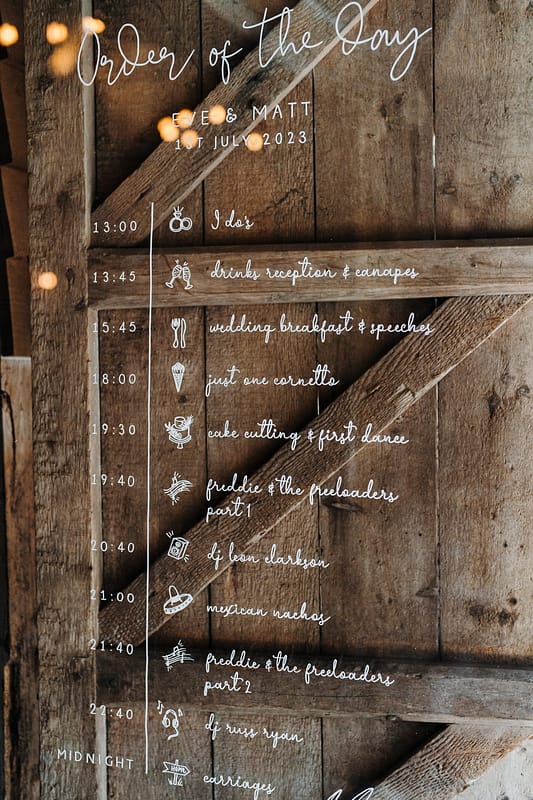 Order of the Day
EVE & MATT
1ST JULY 2023
13:00 I do's
13:45 drinks reception & canapes
15:45 wedding breakfast & speeches
18:00 just one cornetto
19:30 cake cutting & first dance
19:40 freddie & the freeloaders
part 1
20:40 dj leon clarkson
21:00 mexican nachos
21:40 freddie & the freeloaders
part 2
22:40 dj russ ryan
MIDNIGHT carriages